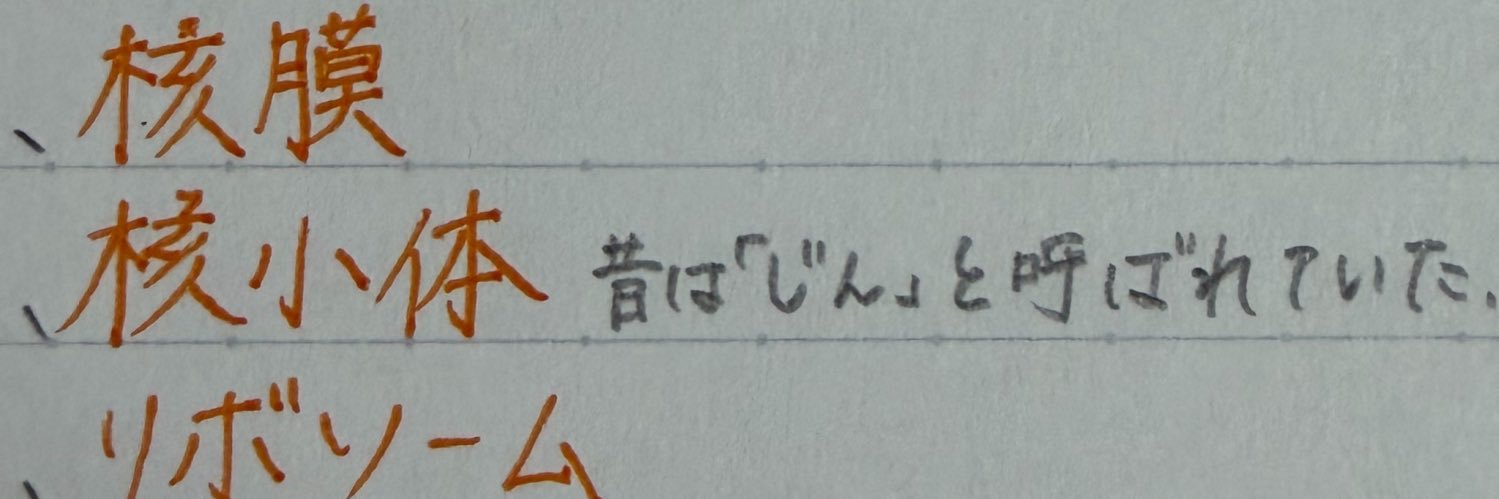 、核膜
、核小体 昔は「じん」と呼ばれていた.
、リボソーム